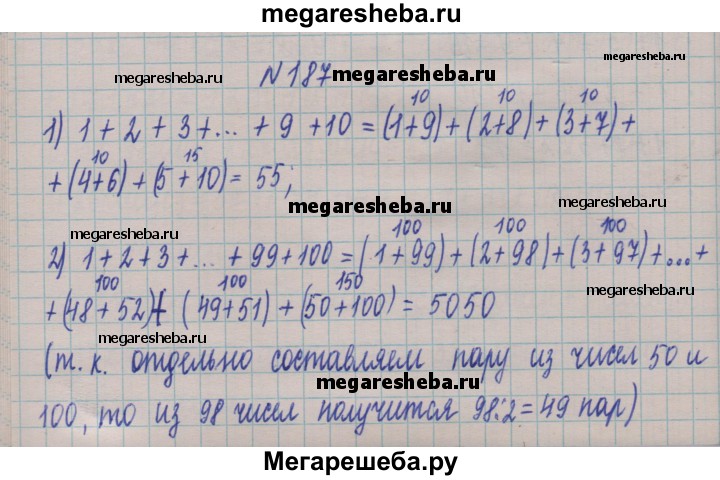 megaresheba.ru
N 187 megaresheba.ru
megaresheba.ru
megaresheba.ru
10 10 10
1) 1 + 2 + 3 + ... + 9 + 10 = (1+9) + (2+8) + (3+7) +
10 15
+ (4+6) + (5 + 10) = 55;
megaresheba.ru
megaresheba.ru
100 100 100
2) 1 + 2 + 3 + ... + 99 + 100 = (1+99) + (2+98) + (3+97) + ... +
100 100 150
+ (48 + 52) + (49+51) + (50+100) = 5050
megaresheba.ru
megaresheba.ru
(т. к. отдельно составляем пару из чисел 50 и
megaresheba.ru
100, то из 98 чисел получится 98:2 = 49 пар)
Мегарешеба.ру